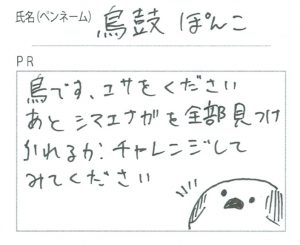 氏名(ペンネーム) 鳥鼓 ぽんこ
PR
鳥です、エサをください
あとシマエナガを全部見つけ
かれるか?チャレンジして
みてください